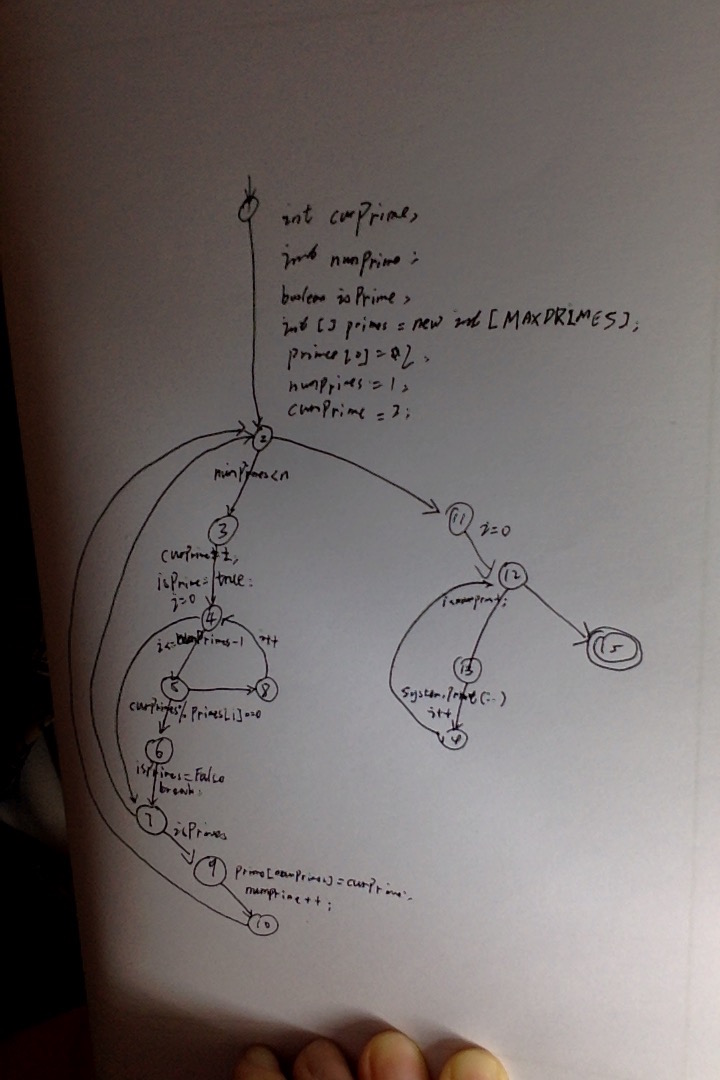 int curPrime;
int numPrime;
boolean isPrime;
int [] primes = new int [MAXPRIMES];
primes [0] = 2;
numPrimes = 1;
curPrime = 2;
2
numPrimes<n
11
i=0
3
curPrime
isPrime = true;
i=0
12
4
i<=numPrimes-1
i++
15
13
5
8
System.Print(...)
curPrimes%Primes[i]==0
i++
6
isPrimes=False
break;
7
isPrimes
9
Prime[numPrimes]=curPrime;
numprime++;
10